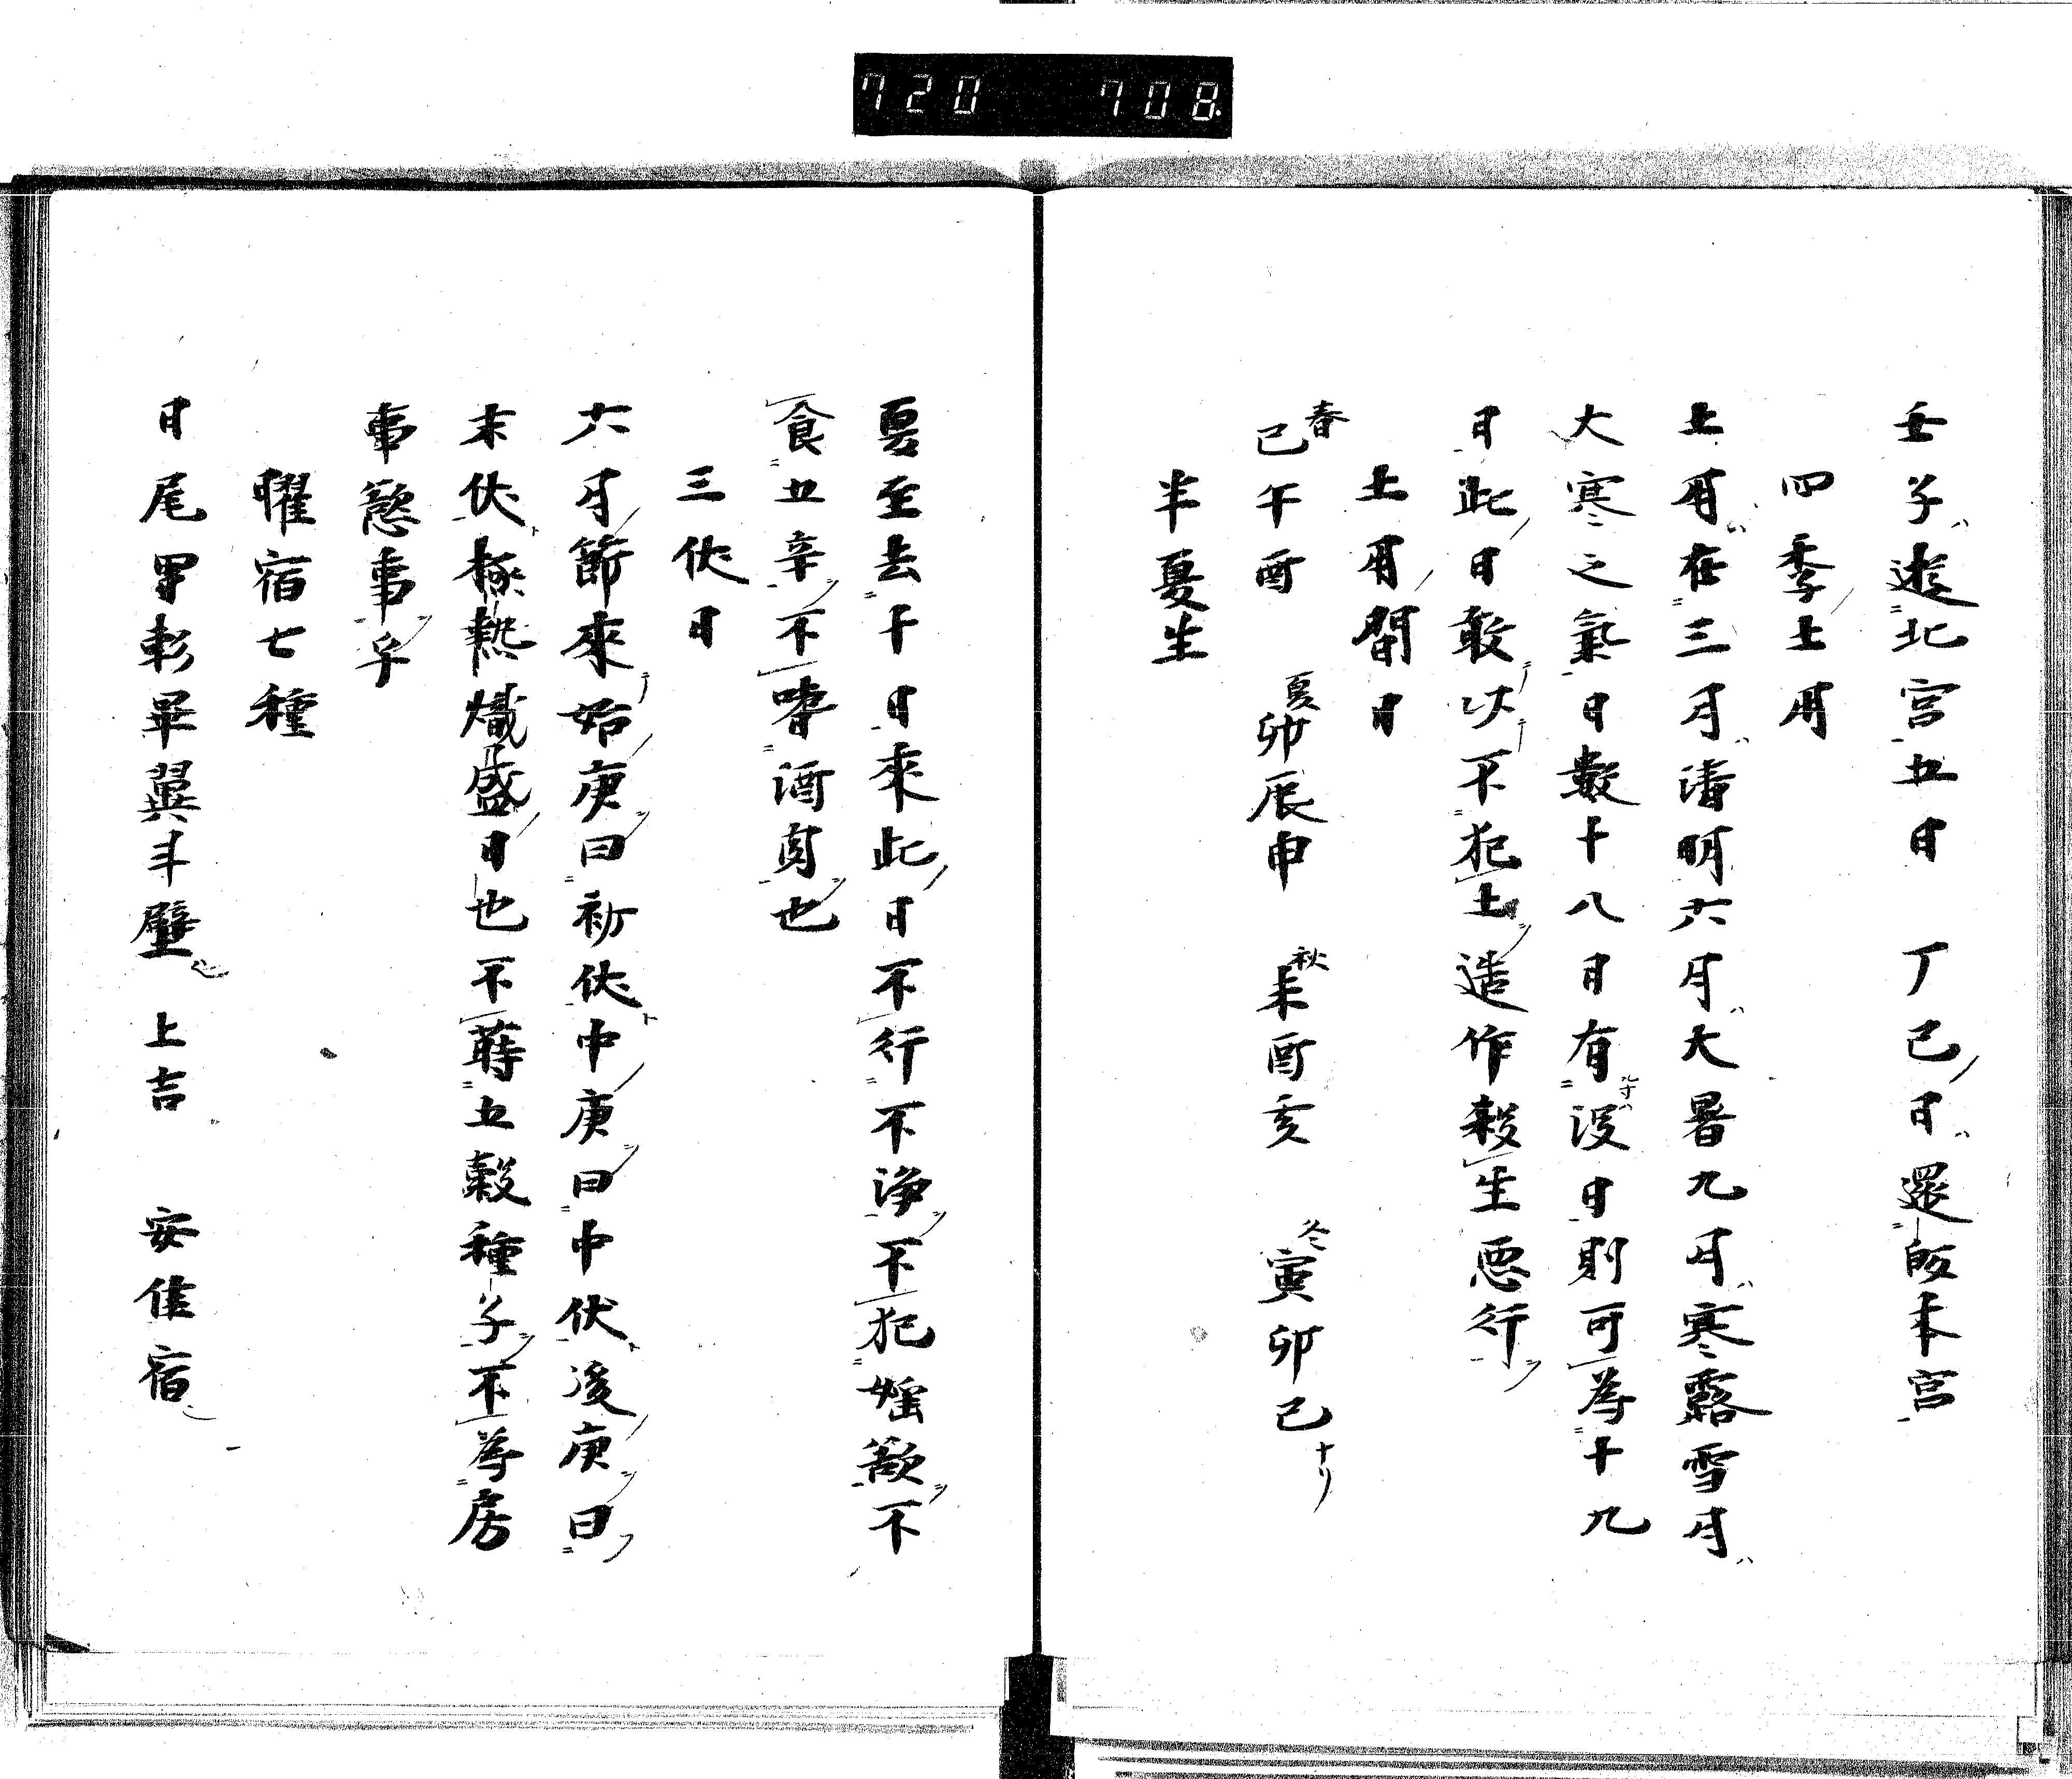 720 708
壬子遊北宮五日 丁巳日還皈本宮
四季土用
土用在三月清明六月大暑九月寒露雪月
大寒之氣日數十八日有没日則可為十九
日此日敢以不犯土造作殺生悪行
土用間日
春巳午酉 夏卯辰申 秋未酉亥 冬寅卯巳ナリ
半夏生
夏至去十日來此日不行不浄不犯婬欲不
食五辛不嗜酒肉也
三伏日
六月節來始庚曰初伏中庚曰中伏後庚曰
末伏極熱熾盛日也不蒔五穀種子不為房
事慾事乎
曜宿七種
日尾畢翼斗壁 上吉 安住宿